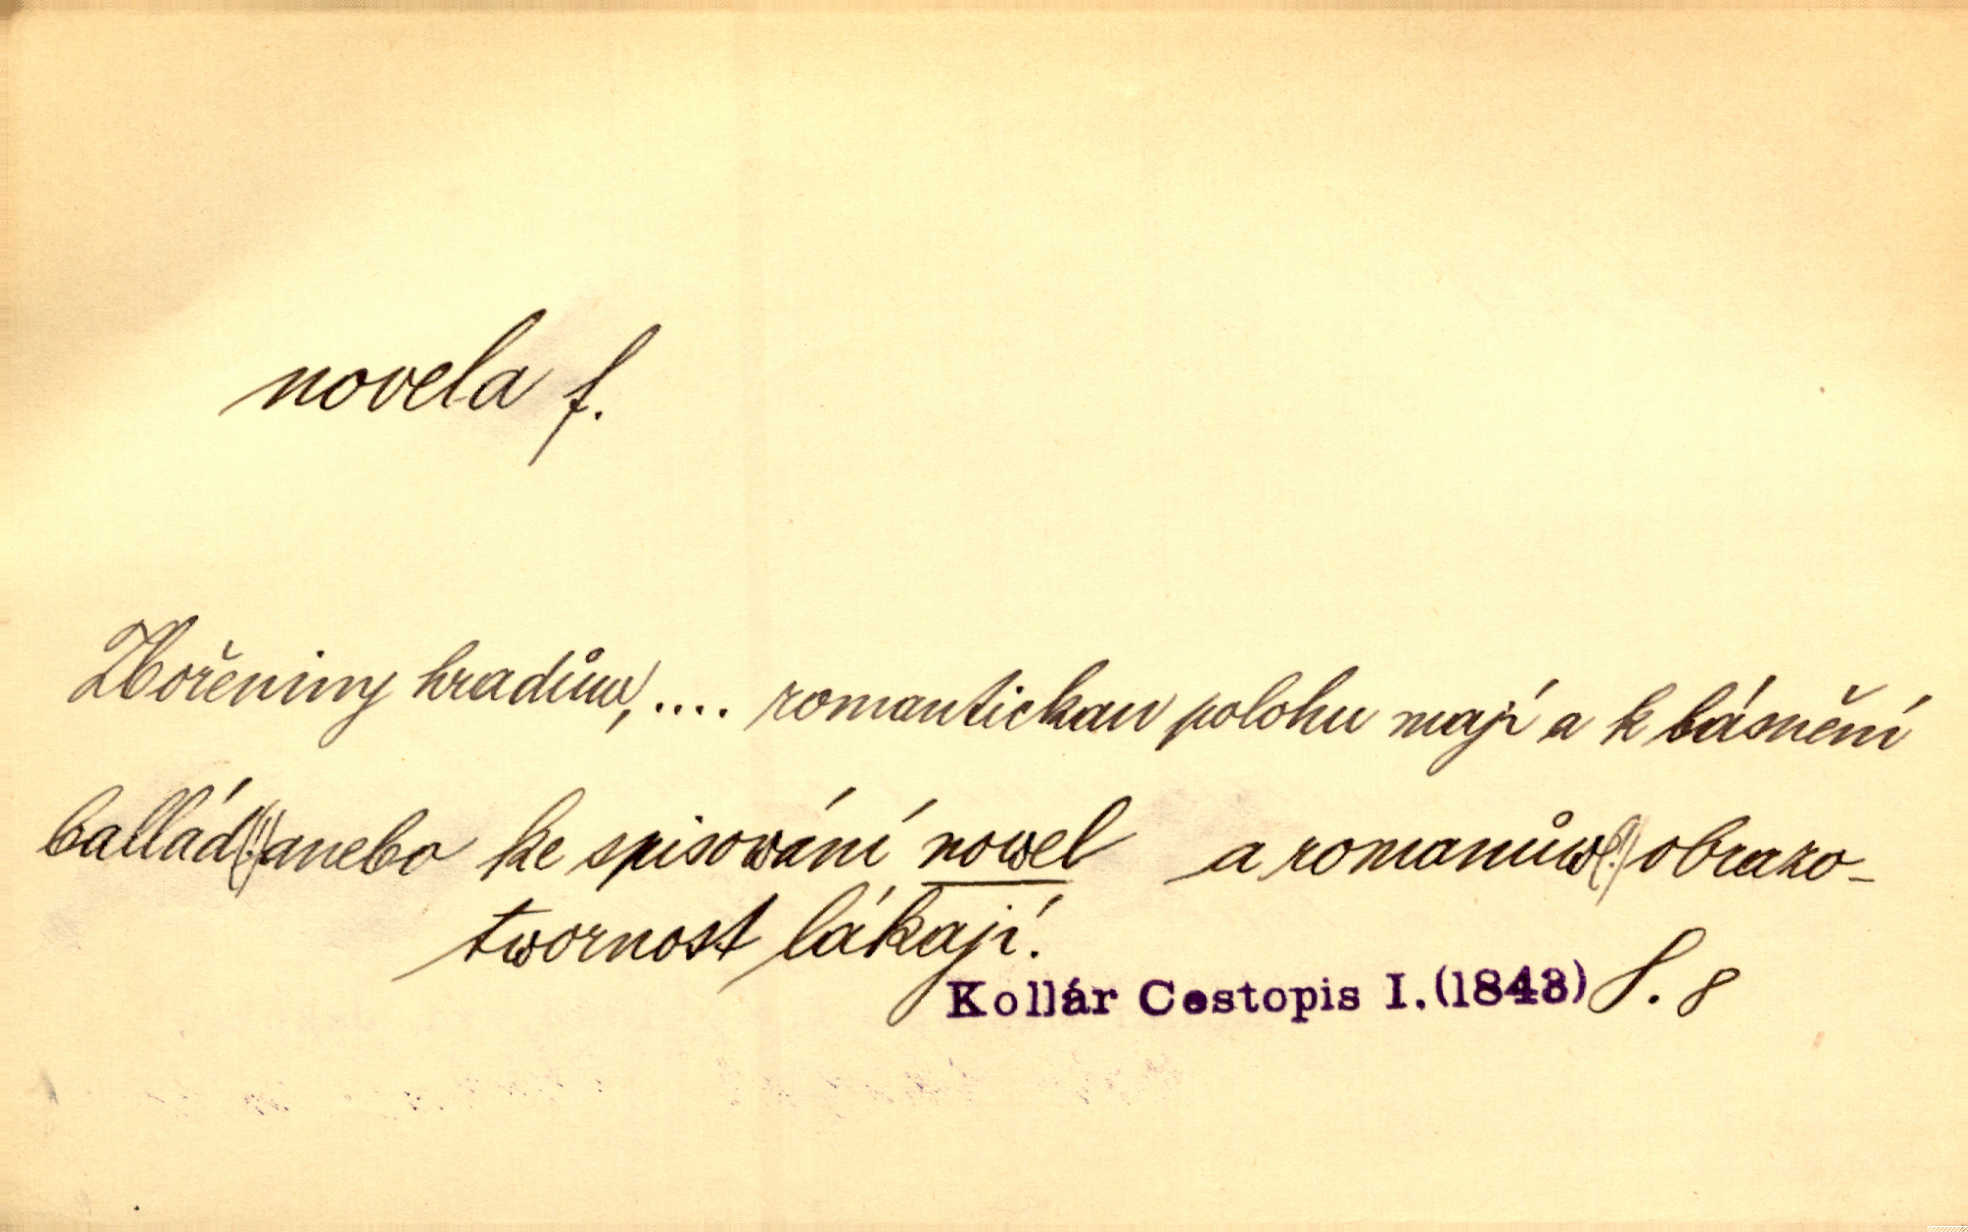 novela f.
Zbořeniny hradůw, .... romantickau polohu mají a k básnění
ballád(!) anebo ke spisowání nowel a romanůw(!) obrazo-
twornost lákají.
Kollár Cestopis I. (1843) S. 8